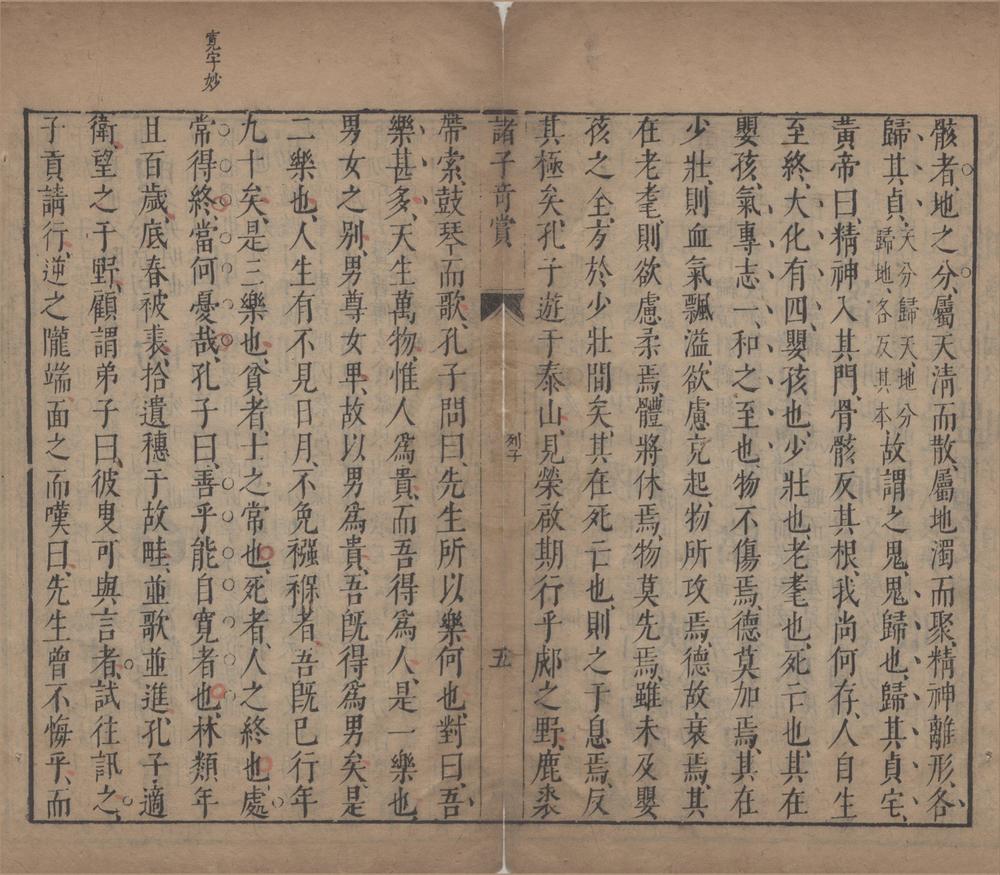 骸者、地之分、屬天清而散、屬地濁而聚、精神離形、各
歸其真、天分歸天、地分歸地、各反其本故謂之鬼、鬼歸也、歸其真宅、
黃帝曰、精神入其門、骨骸反其根、我尚何存、人自生
至終、大化有四、嬰孩也、少壯也、老耄也、死亡也、其在
嬰孩、氣專志一、和之至也、物不傷焉、德莫加焉、其在
少壯、則血氣飄溢、欲慮充起、物所攻焉、德故衰焉、其
在老耄、則欲慮柔焉、體將休焉、物莫先焉、雖未及嬰
孩之全、方於少壯間矣、其在死亡也、則之于息焉、反
其極矣、孔子遊于泰山、見榮啟期行乎郕之野、鹿裘
諸子奇賞
列子
五
帶索、鼓琴而歌、孔子問曰、先生所以樂何也、對曰、吾
樂甚多、天生萬物、惟人爲貴、而吾得爲人、是一樂也、
男女之別、男尊女卑、故以男爲貴、吾旣得爲男矣、是
二樂也、人生有不見日月、不免襁褓者、吾旣已行年
九十矣、是三樂也、貧者、士之常也、死者、人之終也、處
常得終、當何憂哉、孔子曰、善乎能自寬者也、林類年
且百歲、底春被裘、拾遺穗于故畦、並歌並進、孔子適
衛、望之于野、顧謂弟子曰、彼叟可與言者、試往訊之、
子貢請行、逆之隴端、面之而嘆曰、先生曾不悔乎、而
寬字妙